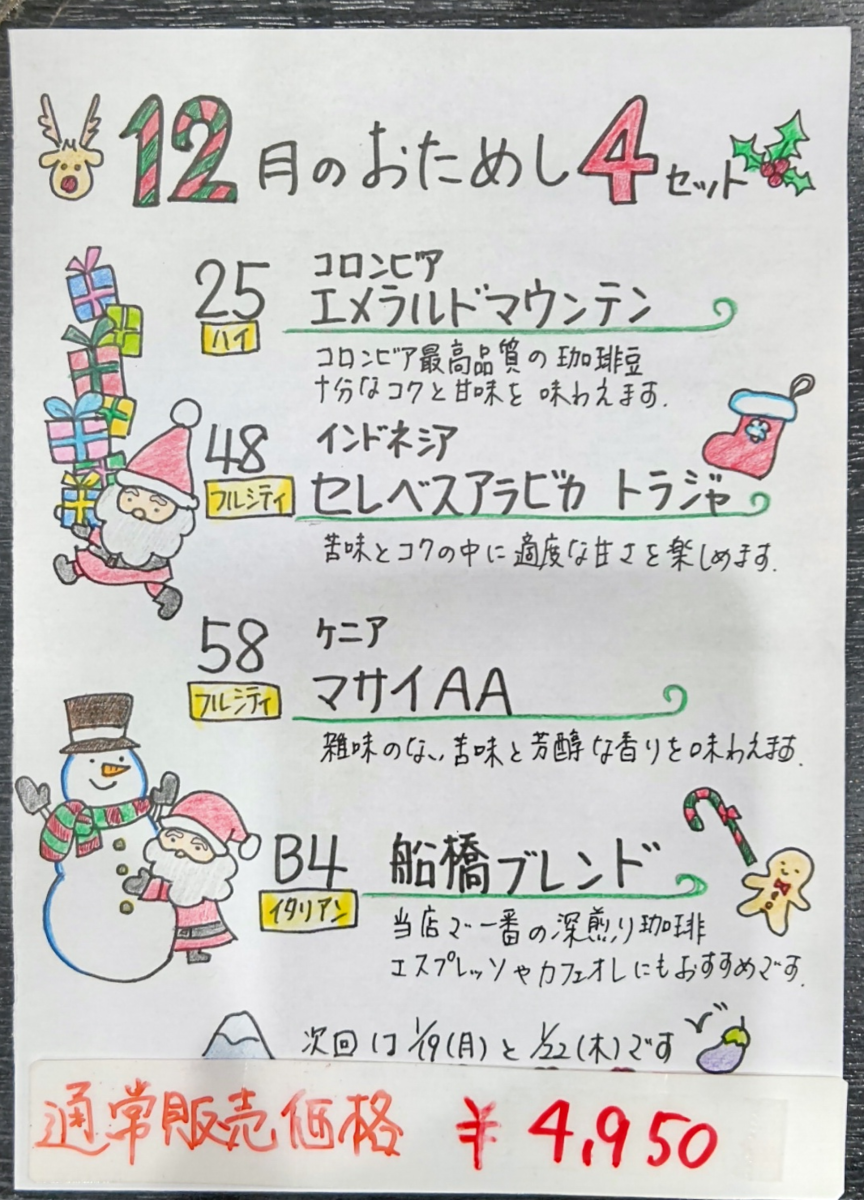 12月のおためし4セット
25 コロンビア
ハイ エメラルドマウンテン
コロンビア最高品質の珈琲豆
十分なコクと甘味を味わえます.
48 インドネシア
フルシティ セレベスアラビカ トラジャ
苦味とコクの中に適度な甘さを楽しめます.
58 ケニア
フルシティ マサイAA
雑味のない苦味と芳醇な香りを味わえます.
B4 船橋ブレンド
イタリアン
当店で一番の深煎り珈琲
エスプレッソやカフェオレにもおすすめです.
次回は1/19(月)と1/22(木)です
通常販売価格 ¥4,950